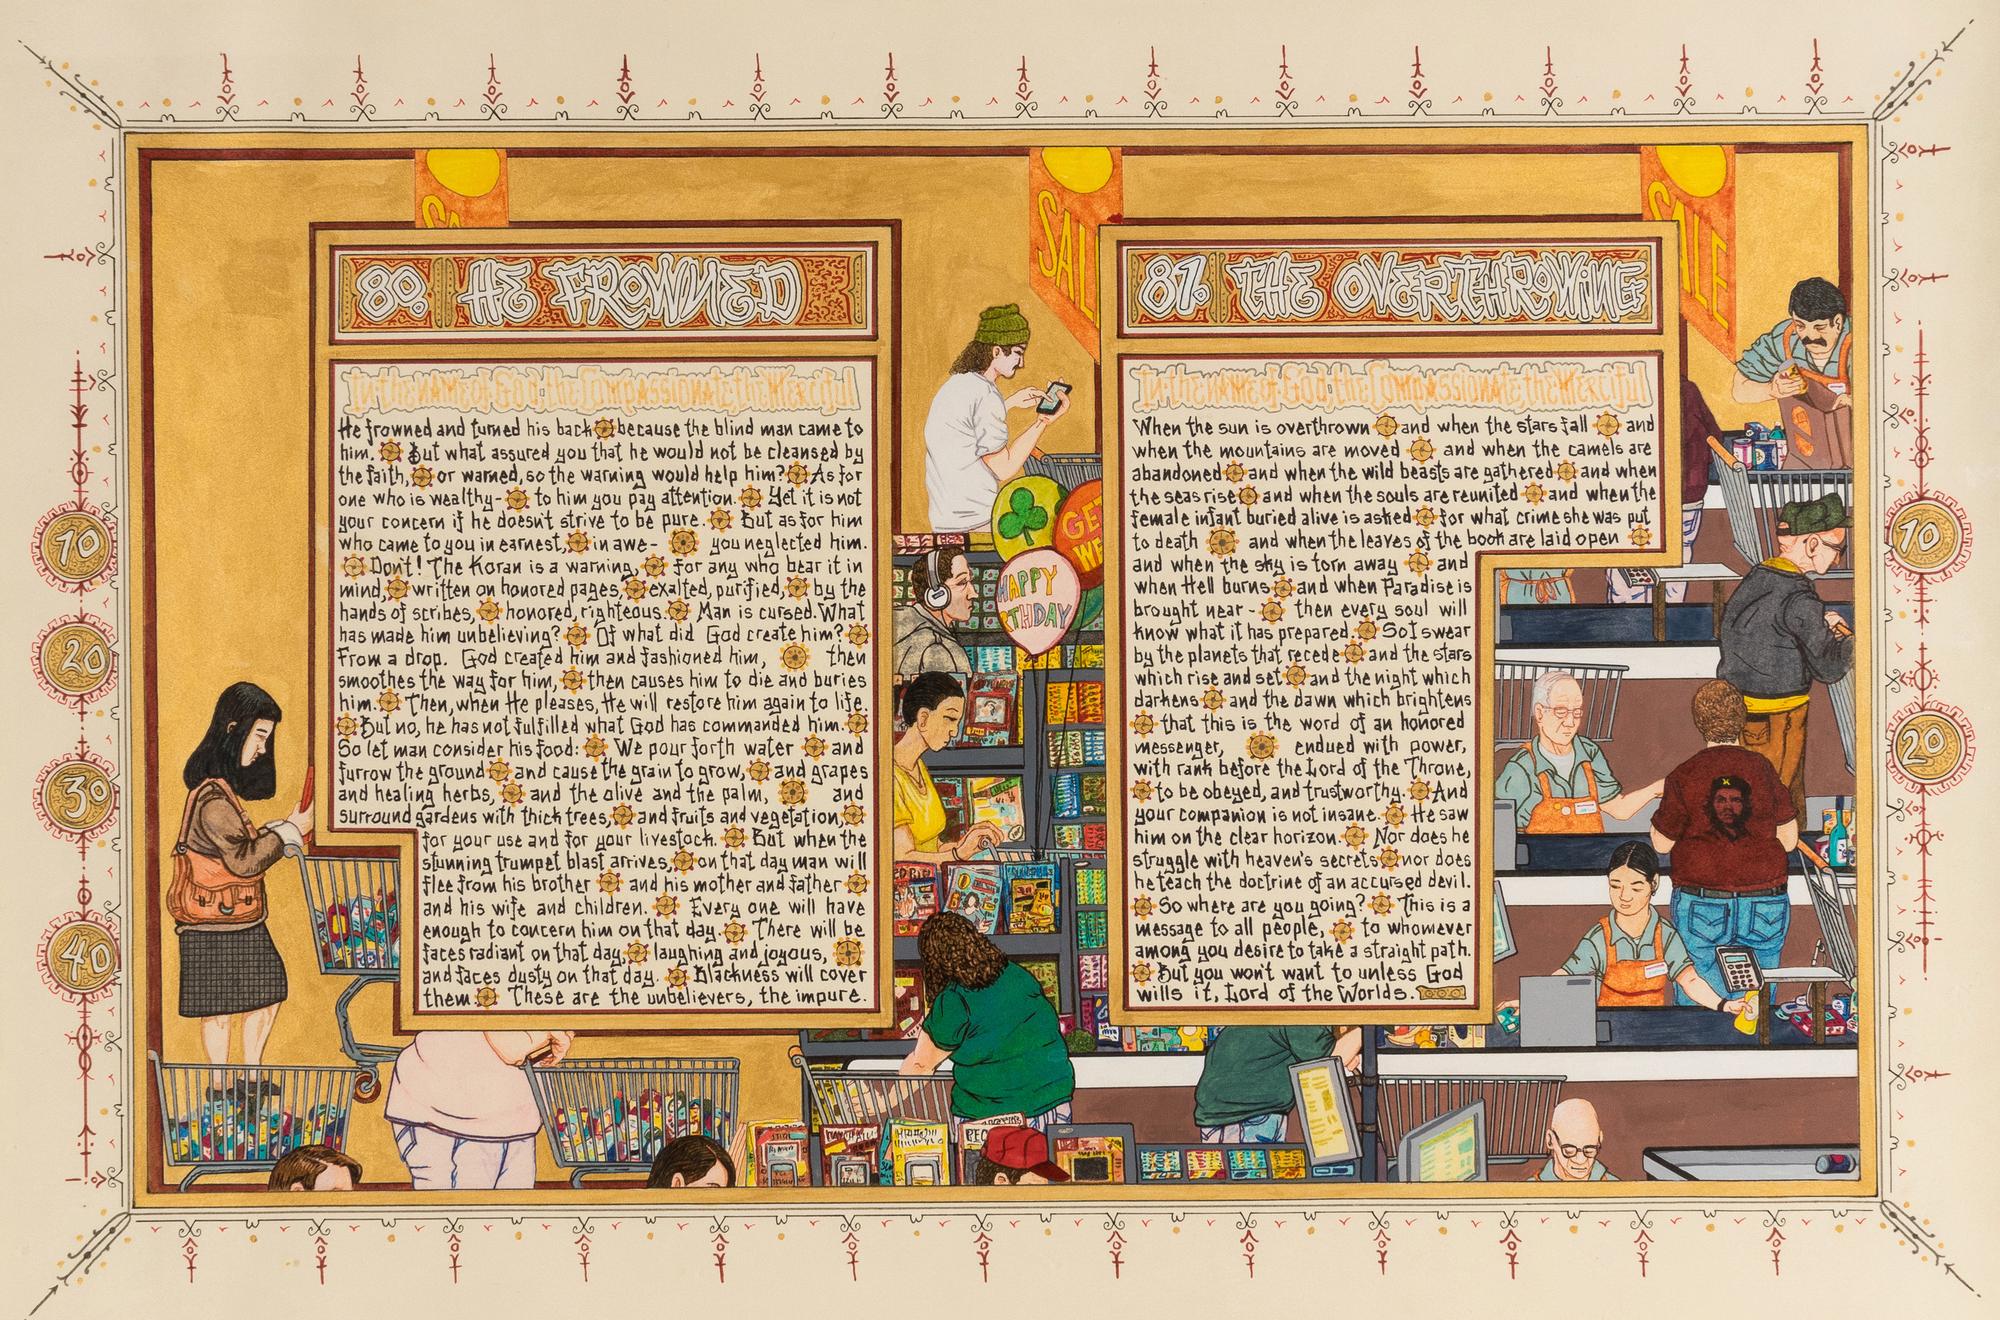 SALE
SALE
80. HE FROWNED
In the name of God, the Compassionate, the Merciful
He frowned and turned his back because the blind man came to
him. But what assured you that he would not be cleansed by
the faith, or warned, so the warning would help him? As for
one who is wealthy- to him you pay attention. Yet it is not
your concern if he doesn't strive to be pure. But as for him
who came to you in earnest, in awe- you neglected him.
Don't! The Koran is a warning, for any who bear it in
mind, written on honored pages, exalted, purified, by the
hands of scribes, honored, righteous. Man is cursed. What
has made him unbelieving? Of what did God create him?
From a drop. God created him and fashioned him, then
smoothes the way for him, then causes him to die and buries
him. Then, when He pleases, He will restore him again to life.
But no, he has not fulfilled what God has commanded him.
So let man consider his food: We pour forth water and
furrow the ground and cause the grain to grow, and grapes
and healing herbs, and the olive and the palm, and
surround gardens with thick trees, and fruits and vegetation,
for your use and for your livestock. But when the
stunning trumpet blast arrives, on that day man will
flee from his brother and his mother and father
and his wife and children. Every one will have
enough to concern him on that day. There will be
faces radiant on that day, laughing and joyous,
and faces dusty on that day. Blackness will cover
them. These are the unbelievers, the impure.
81. THE OVERTHROWING
In the name of God, the Compassionate, the Merciful
When the sun is overthrown and when the stars fall and
when the mountains are moved and when the camels are
abandoned and when the wild beasts are gathered and when
the seas rise and when the souls are reunited and when the
female infant buried alive is asked for what crime she was put
to death and when the leaves of the book are laid open
and when the sky is torn away and
when Hell burns and when Paradise is
brought near- then every soul will
know what it has prepared. So I swear
by the planets that recede and the stars
which rise and set and the night which
darkens and the dawn which brightens
that this is the word of an honored
messenger, endued with power,
with rank before the Lord of the Throne,
to be obeyed, and trustworthy. And
your companion is not insane. He saw
him on the clear horizon. Nor does he
struggle with heaven's secrets nor does
he teach the doctrine of an accursed devil.
So where are you going? This is a
message to all people, to whomever
among you desire to take a straight path.
But you won't want to unless God
wills it, Lord of the Worlds.
GET
WE
HAPPY
RTHDAY
10
20
30
40
10
20